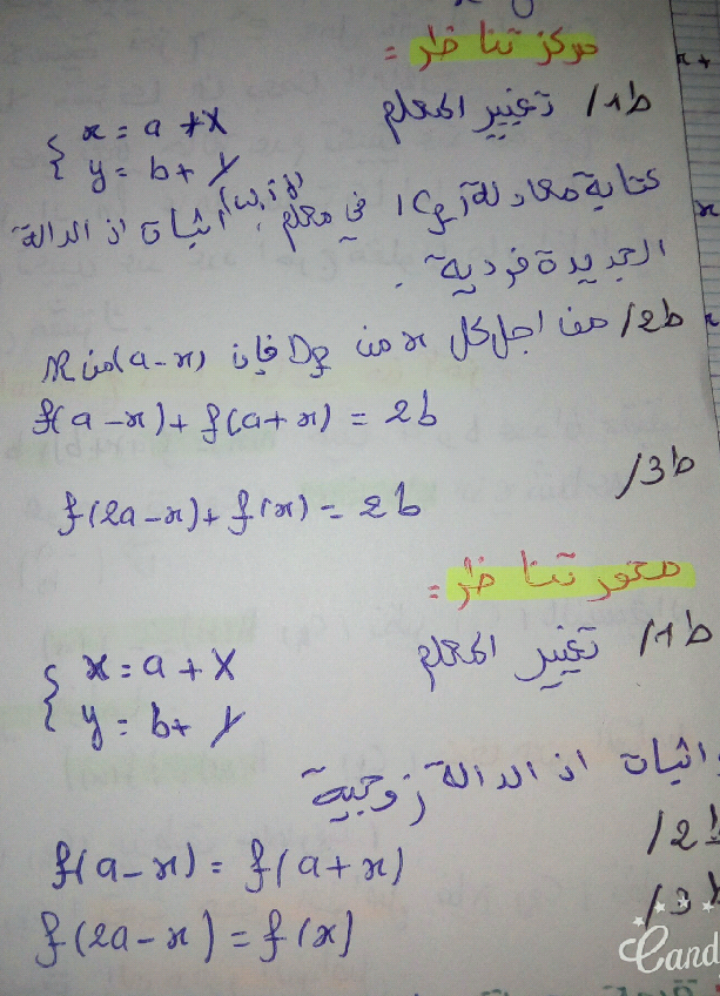 مركز تناظر =
ط1/ تغيير المعلم
{ x = a + X
y = b + Y
كتابة معادلة (Cf) في معلم، اثبات ان الدالة
الجديدة فردية.
ط2/ من اجل كل x من Df فإن (a-x) من R
f(a-x) + f(a+x) = 2b
ط3/
f(2a-x) + f(x) = 2b
محور تناظر =
ط1/ تغيير المعلم
{ x = a + X
y = b + Y
واثبات ان الدالة زوجية
ط2/
f(a-x) = f(a+x)
ط3/
f(2a-x) = f(x)
Cand